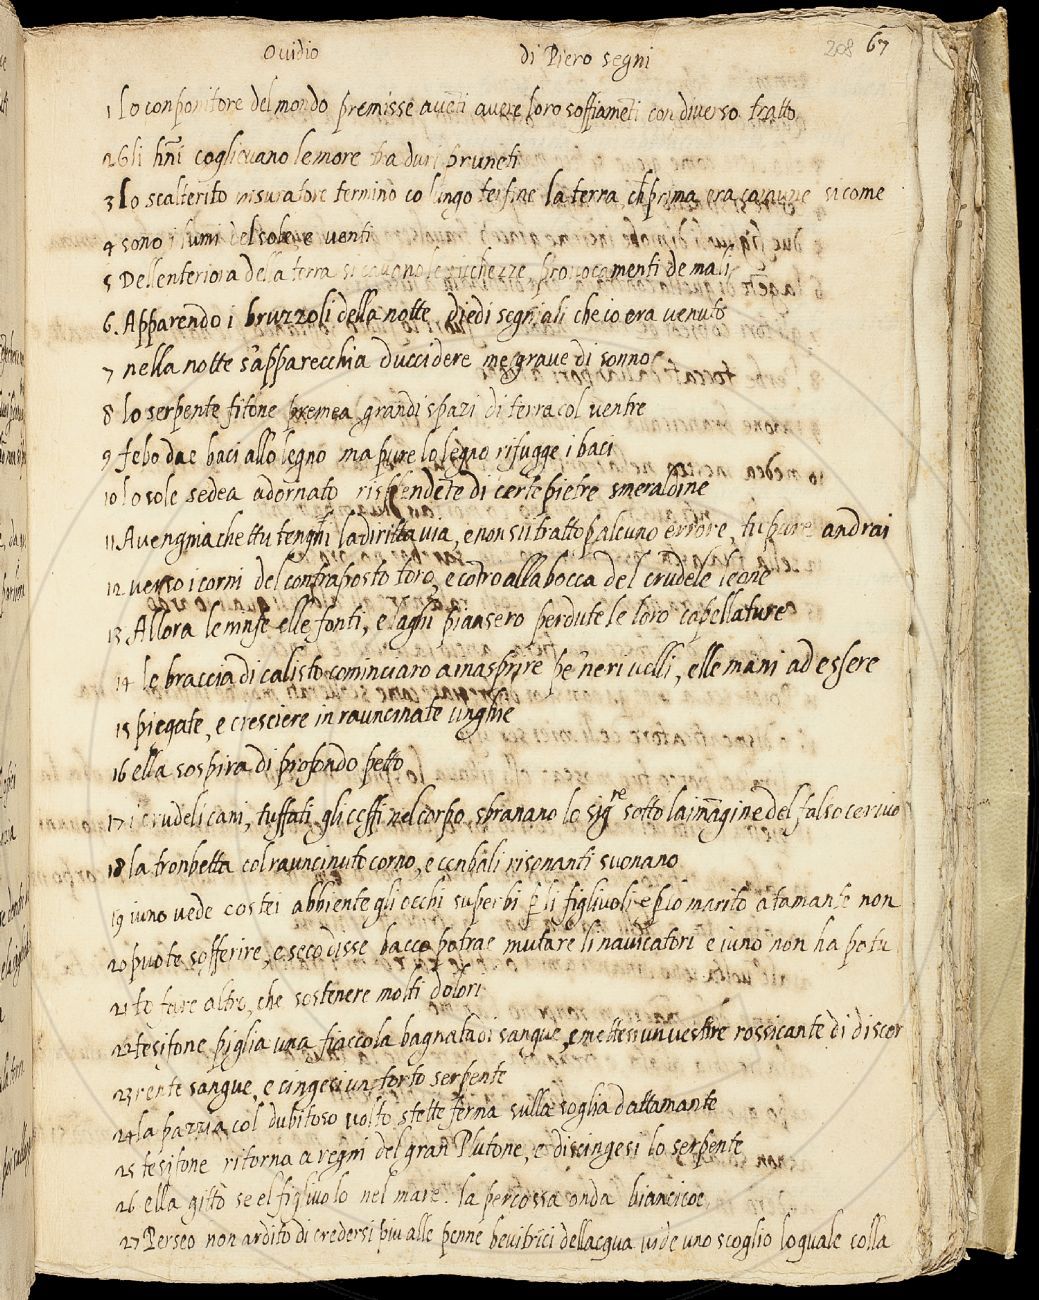 Ovidio di Piero segni 208 67
1 Lo conponitore del mondo premisse a venti avere loro soffiamēti con diverso tratto
2 Gli hñi coglievano lemore tra duri pruneti
3 Lo scalterito misuratore termino co lungo terfine la terra ch prima era comune sicome
4 sono i lumi del sole, e venti
5 Dellenteriora della terra si cavono le richezze, provocamenti de mali
6. Apparendo i bruzzoli della notte, diedi segniali che io era venuto
7 nella notte s'apparecchia d'uccidere me grave di sonno
8 lo serpente fitone premea grandi spazi di terra col ventre
9 febo dae baci allo legno ma pure lo legno rifugge i baci
10 lo sole sedea adornato risplendēte di certe pietre smeraldine
11 Avengnia che ttu tenghi la diritta via, e non sii tratto p alcuno errore, tu pure andrai
12 verso i corni del contraposto toro, e cōtro alla bocca del crudele leone
13 Allora le ninfe elle fonti, e laghi piansero perdute le loro capellature
14 le braccia di calisto cominciaro a inasprire pe neri velli, elle mani ad essere
15 piegate, e cresciere in rauncinate unghie
16 ella sospira di profondo petto
17 i crudeli cani, tuffati gli ceffi nel corpo sbranano lo sigre sotto la imagine del falso cervio
18 la tronbetta col rauncinuto corno, e cenbali risonanti suonano
19 iuno vede costei abbiente gli occhi superbi p li figlivoli e p lo marito atamante non
20 puote sofferire, e seco disse bacco potrae mutare li navicatori e iuno non ha potu
21 to fare altro, che sostenere molti dolori
22 tesifone piglia una fiaccola bagnata di sangue, e mettesi un vestire rossicante di discor
23 rente sangue, e cingesi un torto serpente
24 la pazzia col dubitoso volto stette ferma sulla soglia dattamante
25 tesifone ritorna a regni del gran Plutone, e discingesi lo serpente
26 ella gittò se el figlivolo nel mare. la percossa onda biancicoe
27 Perseo non ardito di credersi piu alle penne bevitrici dellacqua vide uno scoglio loquale colla